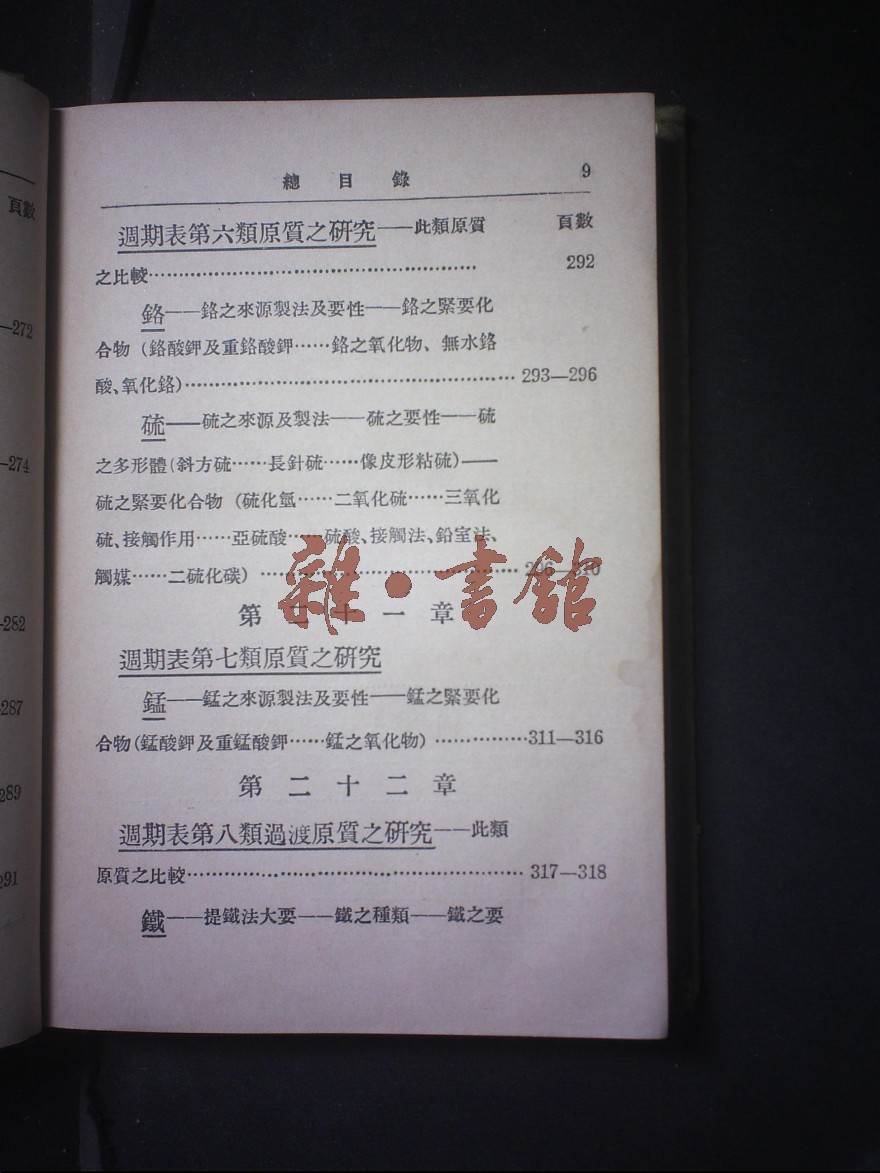 總目錄 9
頁數
週期表第六類原質之研究——此類原質 頁數
之比較…………………………………………… 292
鉻——鉻之來源製法及要性——鉻之緊要化
合物（鉻酸鉀及重鉻酸鉀……鉻之氧化物、無水鉻
酸、氧化鉻）…………………………………………… 293—296
硫——硫之來源及製法——硫之要性——硫
之多形體（斜方硫……長針硫……像皮形粘硫）——
硫之緊要化合物（硫化氫……二氧化硫……三氧化
硫、接觸作用……亞硫酸……硫酸、接觸法、鉛室法、
觸媒……二硫化碳）………………………………… 296—310
第二十一章
週期表第七類原質之研究
錳——錳之來源製法及要性——錳之緊要化
合物（錳酸鉀及重錳酸鉀……錳之氧化物）……………311—316
第二十二章
週期表第八類過渡原質之研究——此類
原質之比較…………………………………………… 317—318
鐵——提鐵法大要——鐵之種類——鐵之要
—272
—274
—282
—287
289
291
雜·書館